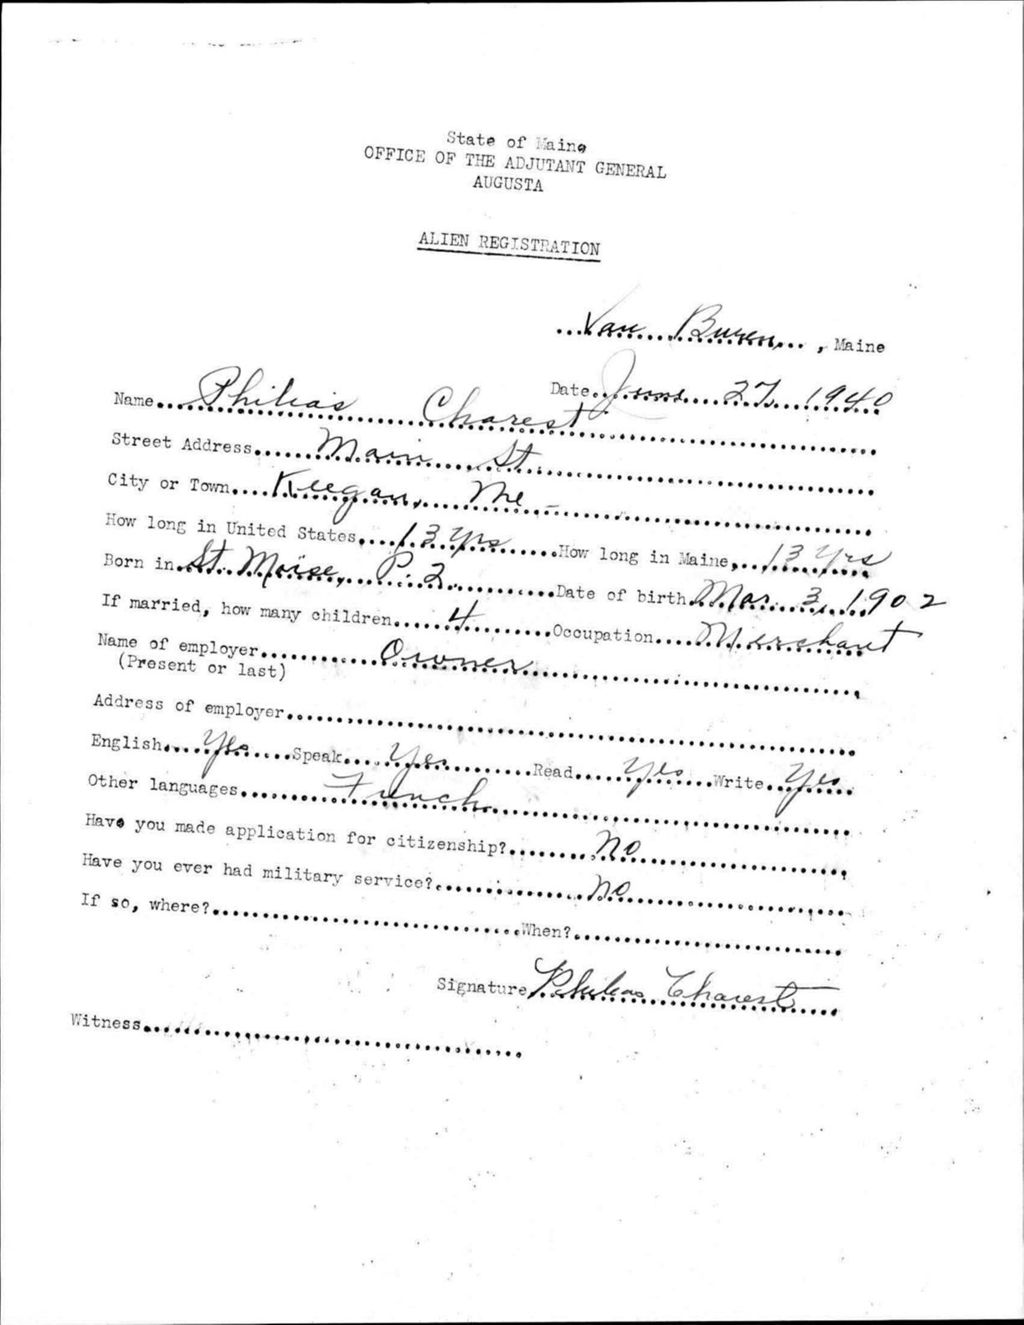 State of Maine
OFFICE OF THE ADJUTANT GENERAL
AUGUSTA
ALIEN REGISTRATION
Van Buren, Maine
Date June 27, 1940
Name Philias Charest
Street Address Main St.
City or Town Keegan, Me.
How long in United States 13 yrs How long in Maine 13 yrs
Born in St. Moise, P. Q. Date of birth Mar. 3, 1902
If married, how many children 4 Occupation Merchant
Name of employer Owner
(Present or last)
Address of employer
English Yes Speak Yes Read Yes Write Yes
Other languages French
Have you made application for citizenship? No
Have you ever had military service? No
If so, where? When?
Signature Philias Charest
Witness